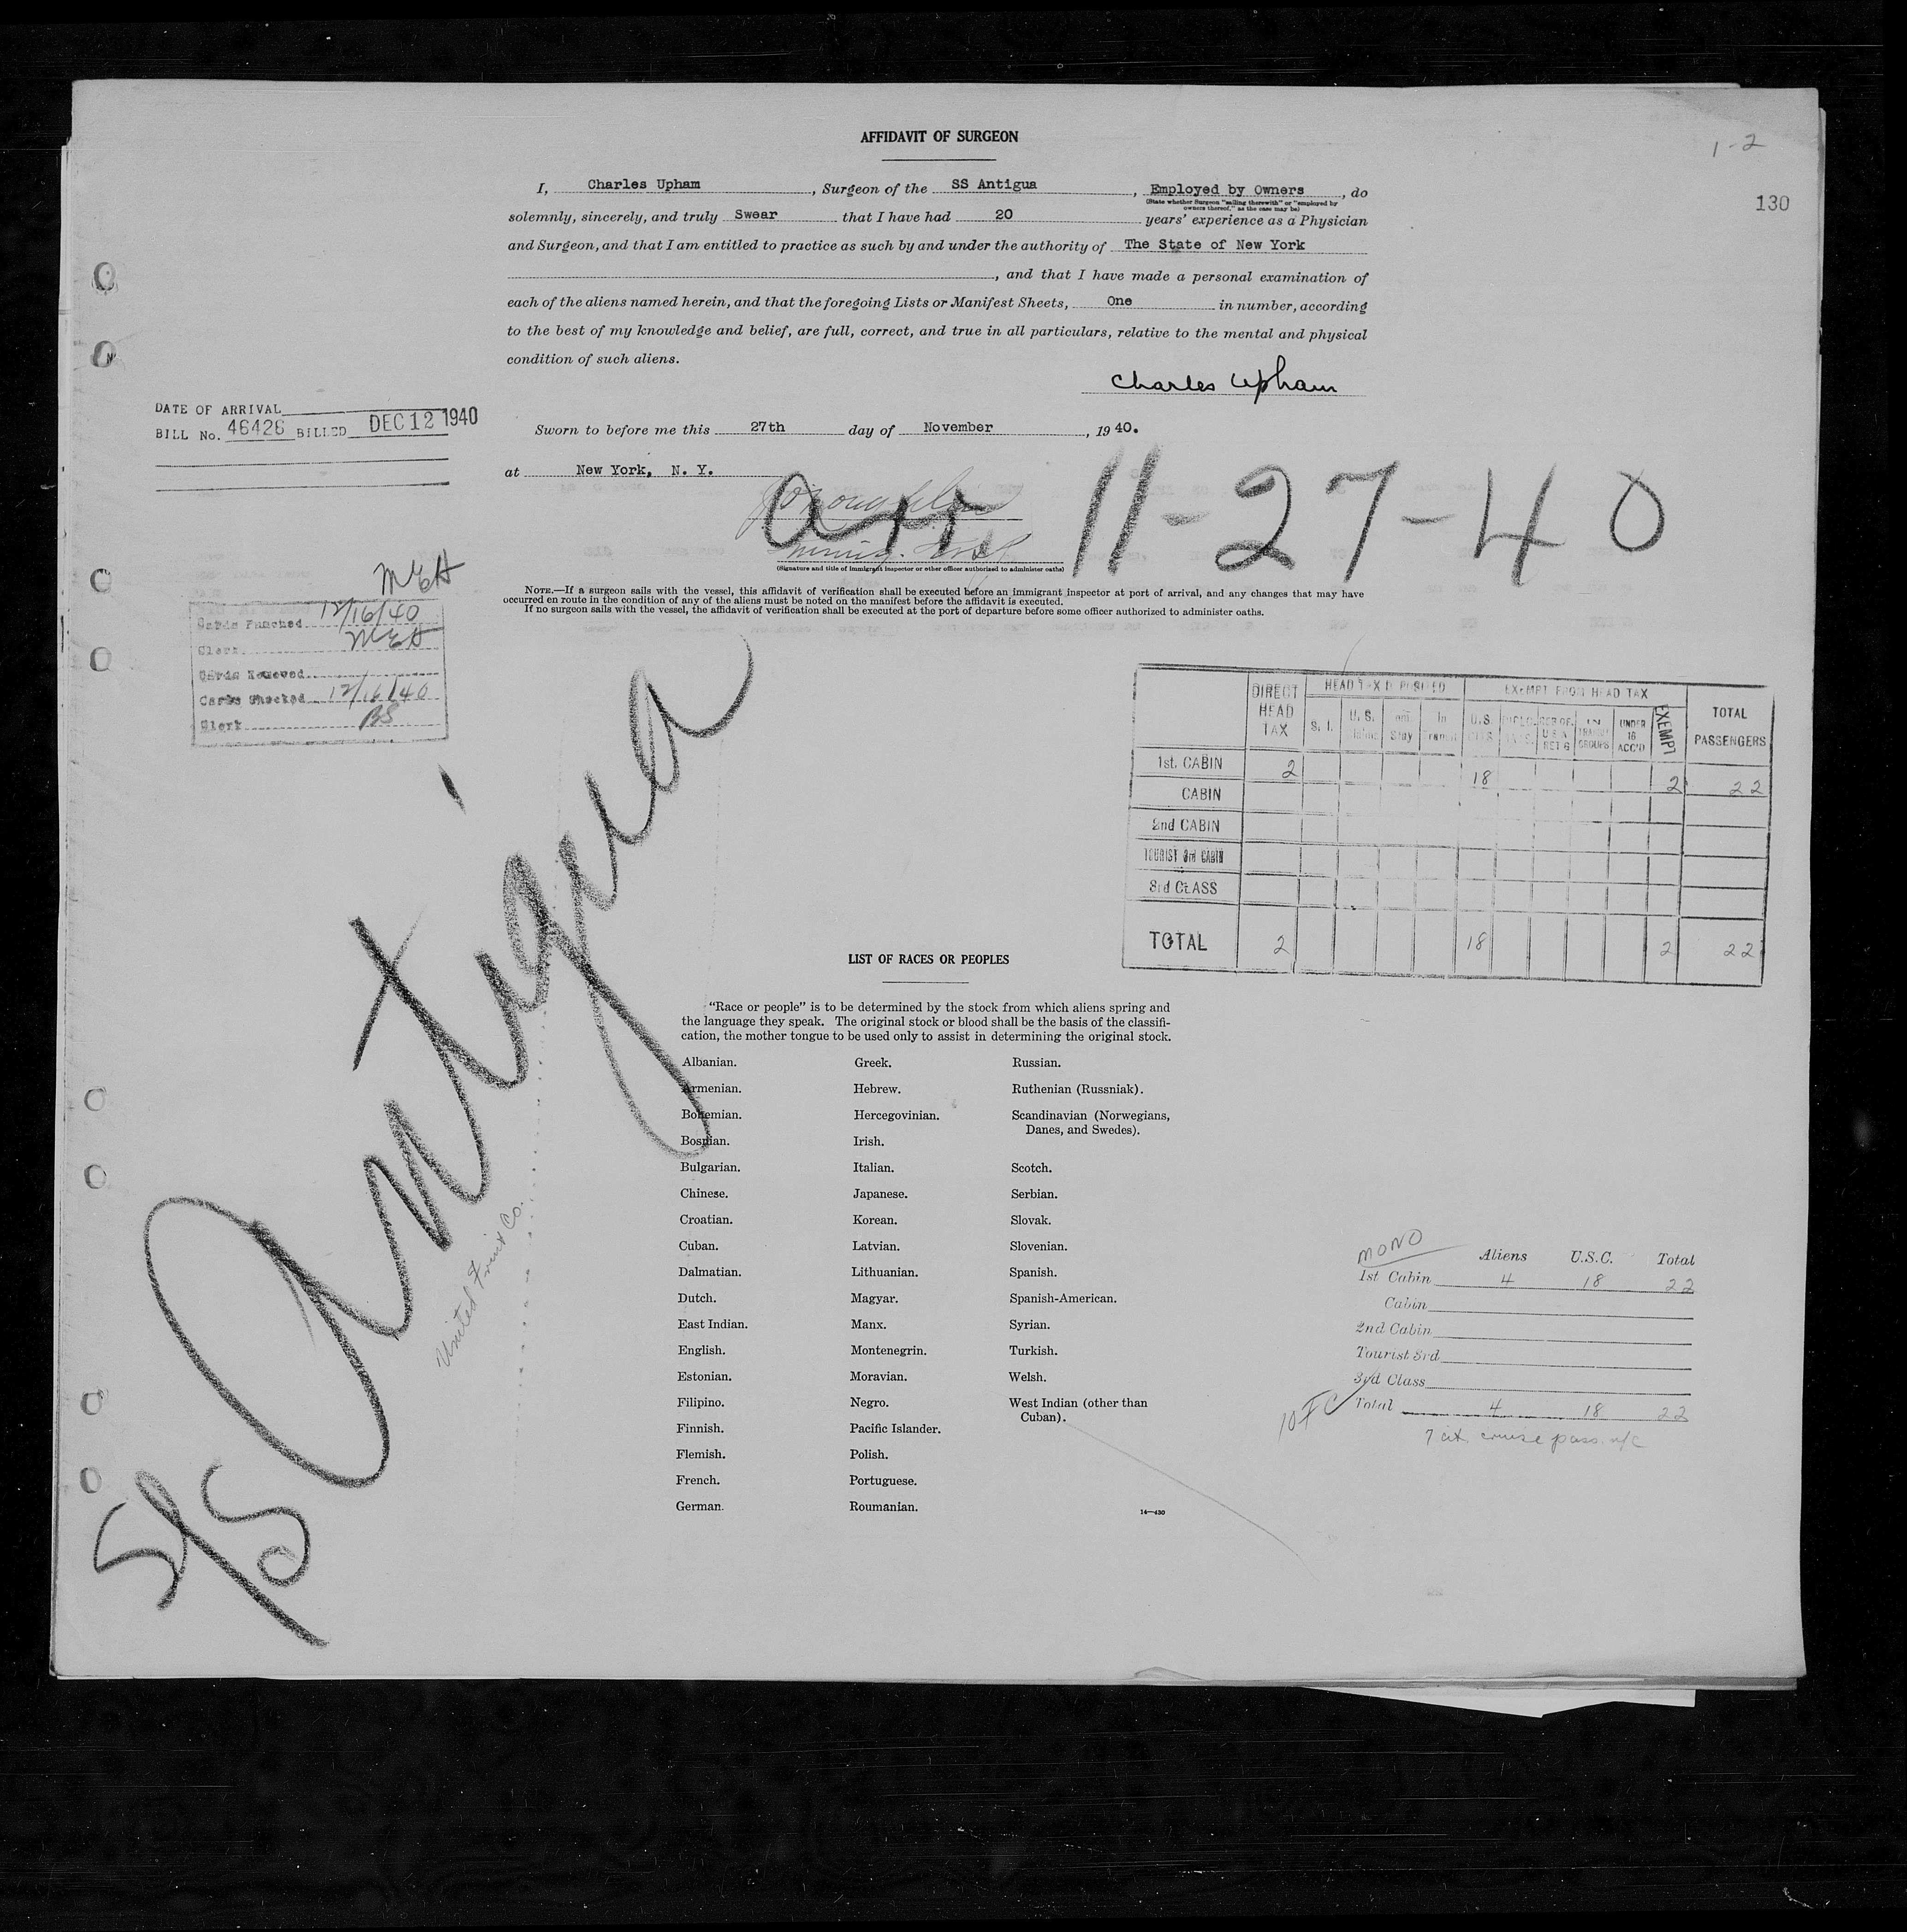 AFFIDAVIT OF SURGEON
1-2
130
I, Charles Upham, Surgeon of the SS Antigua, Employed by Owners, do
(State whether Surgeon "sailing therewith" or "employed by
owners thereof," as the case may be)
solemnly, sincerely, and truly Swear that I have had 20 years' experience as a Physician
and Surgeon, and that I am entitled to practice as such by and under the authority of The State of New York
, and that I have made a personal examination of
each of the aliens named herein, and that the foregoing Lists or Manifest Sheets, One in number, according
to the best of my knowledge and belief, are full, correct, and true in all particulars, relative to the mental and physical
condition of such aliens.
Charles Upham
DATE OF ARRIVAL
BILL No. 46426 BILLED DEC 12 1940
Sworn to before me this 27th day of November, 1940.
at New York, N. Y.
arr. 11-27-40
(Signature and title of immigrant inspector or other officer authorized to administer oaths)
NOTE.—If a surgeon sails with the vessel, this affidavit of verification shall be executed before an immigrant inspector at port of arrival, and any changes that may have
occurred en route in the condition of any of the aliens must be noted on the manifest before the affidavit is executed.
If no surgeon sails with the vessel, the affidavit of verification shall be executed at the port of departure before some officer authorized to administer oaths.
MEH
Cards Punched 12/16/40
Clerk MEH
Cards Removed
Cards Checked 12/16/40
Clerk BS
DIRECT HEAD TAX
HEAD TAX DEPOSITED
EXEMPT FROM HEAD TAX
TOTAL PASSENGERS
S. I. U. S. In Transit U.S. UNDER 16 ACC'D EXEMPT
1st. CABIN 2 18 2 22
CABIN
2nd CABIN
TOURIST 3rd CABIN
3rd CLASS
TOTAL 2 18 2 22
S/S Antigua
United Fruit Co.
LIST OF RACES OR PEOPLES
"Race or people" is to be determined by the stock from which aliens spring and
the language they speak. The original stock or blood shall be the basis of the classifi-
cation, the mother tongue to be used only to assist in determining the original stock.
Albanian.
Armenian.
Bohemian.
Bosnian.
Bulgarian.
Chinese.
Croatian.
Cuban.
Dalmatian.
Dutch.
East Indian.
English.
Estonian.
Filipino.
Finnish.
Flemish.
French.
German.
Greek.
Hebrew.
Hercegovinian.
Irish.
Italian.
Japanese.
Korean.
Latvian.
Lithuanian.
Magyar.
Manx.
Montenegrin.
Moravian.
Negro.
Pacific Islander.
Polish.
Portuguese.
Roumanian.
Russian.
Ruthenian (Russniak).
Scandinavian (Norwegians,
Danes, and Swedes).
Scotch.
Serbian.
Slovak.
Slovenian.
Spanish.
Spanish-American.
Syrian.
Turkish.
Welsh.
West Indian (other than
Cuban).
14—430
MONO
Aliens U.S.C. Total
1st Cabin 4 18 22
Cabin
2nd Cabin
Tourist 3rd
3rd Class
Total 4 18 22
10 FC
7 cit. cruise pass. n/c